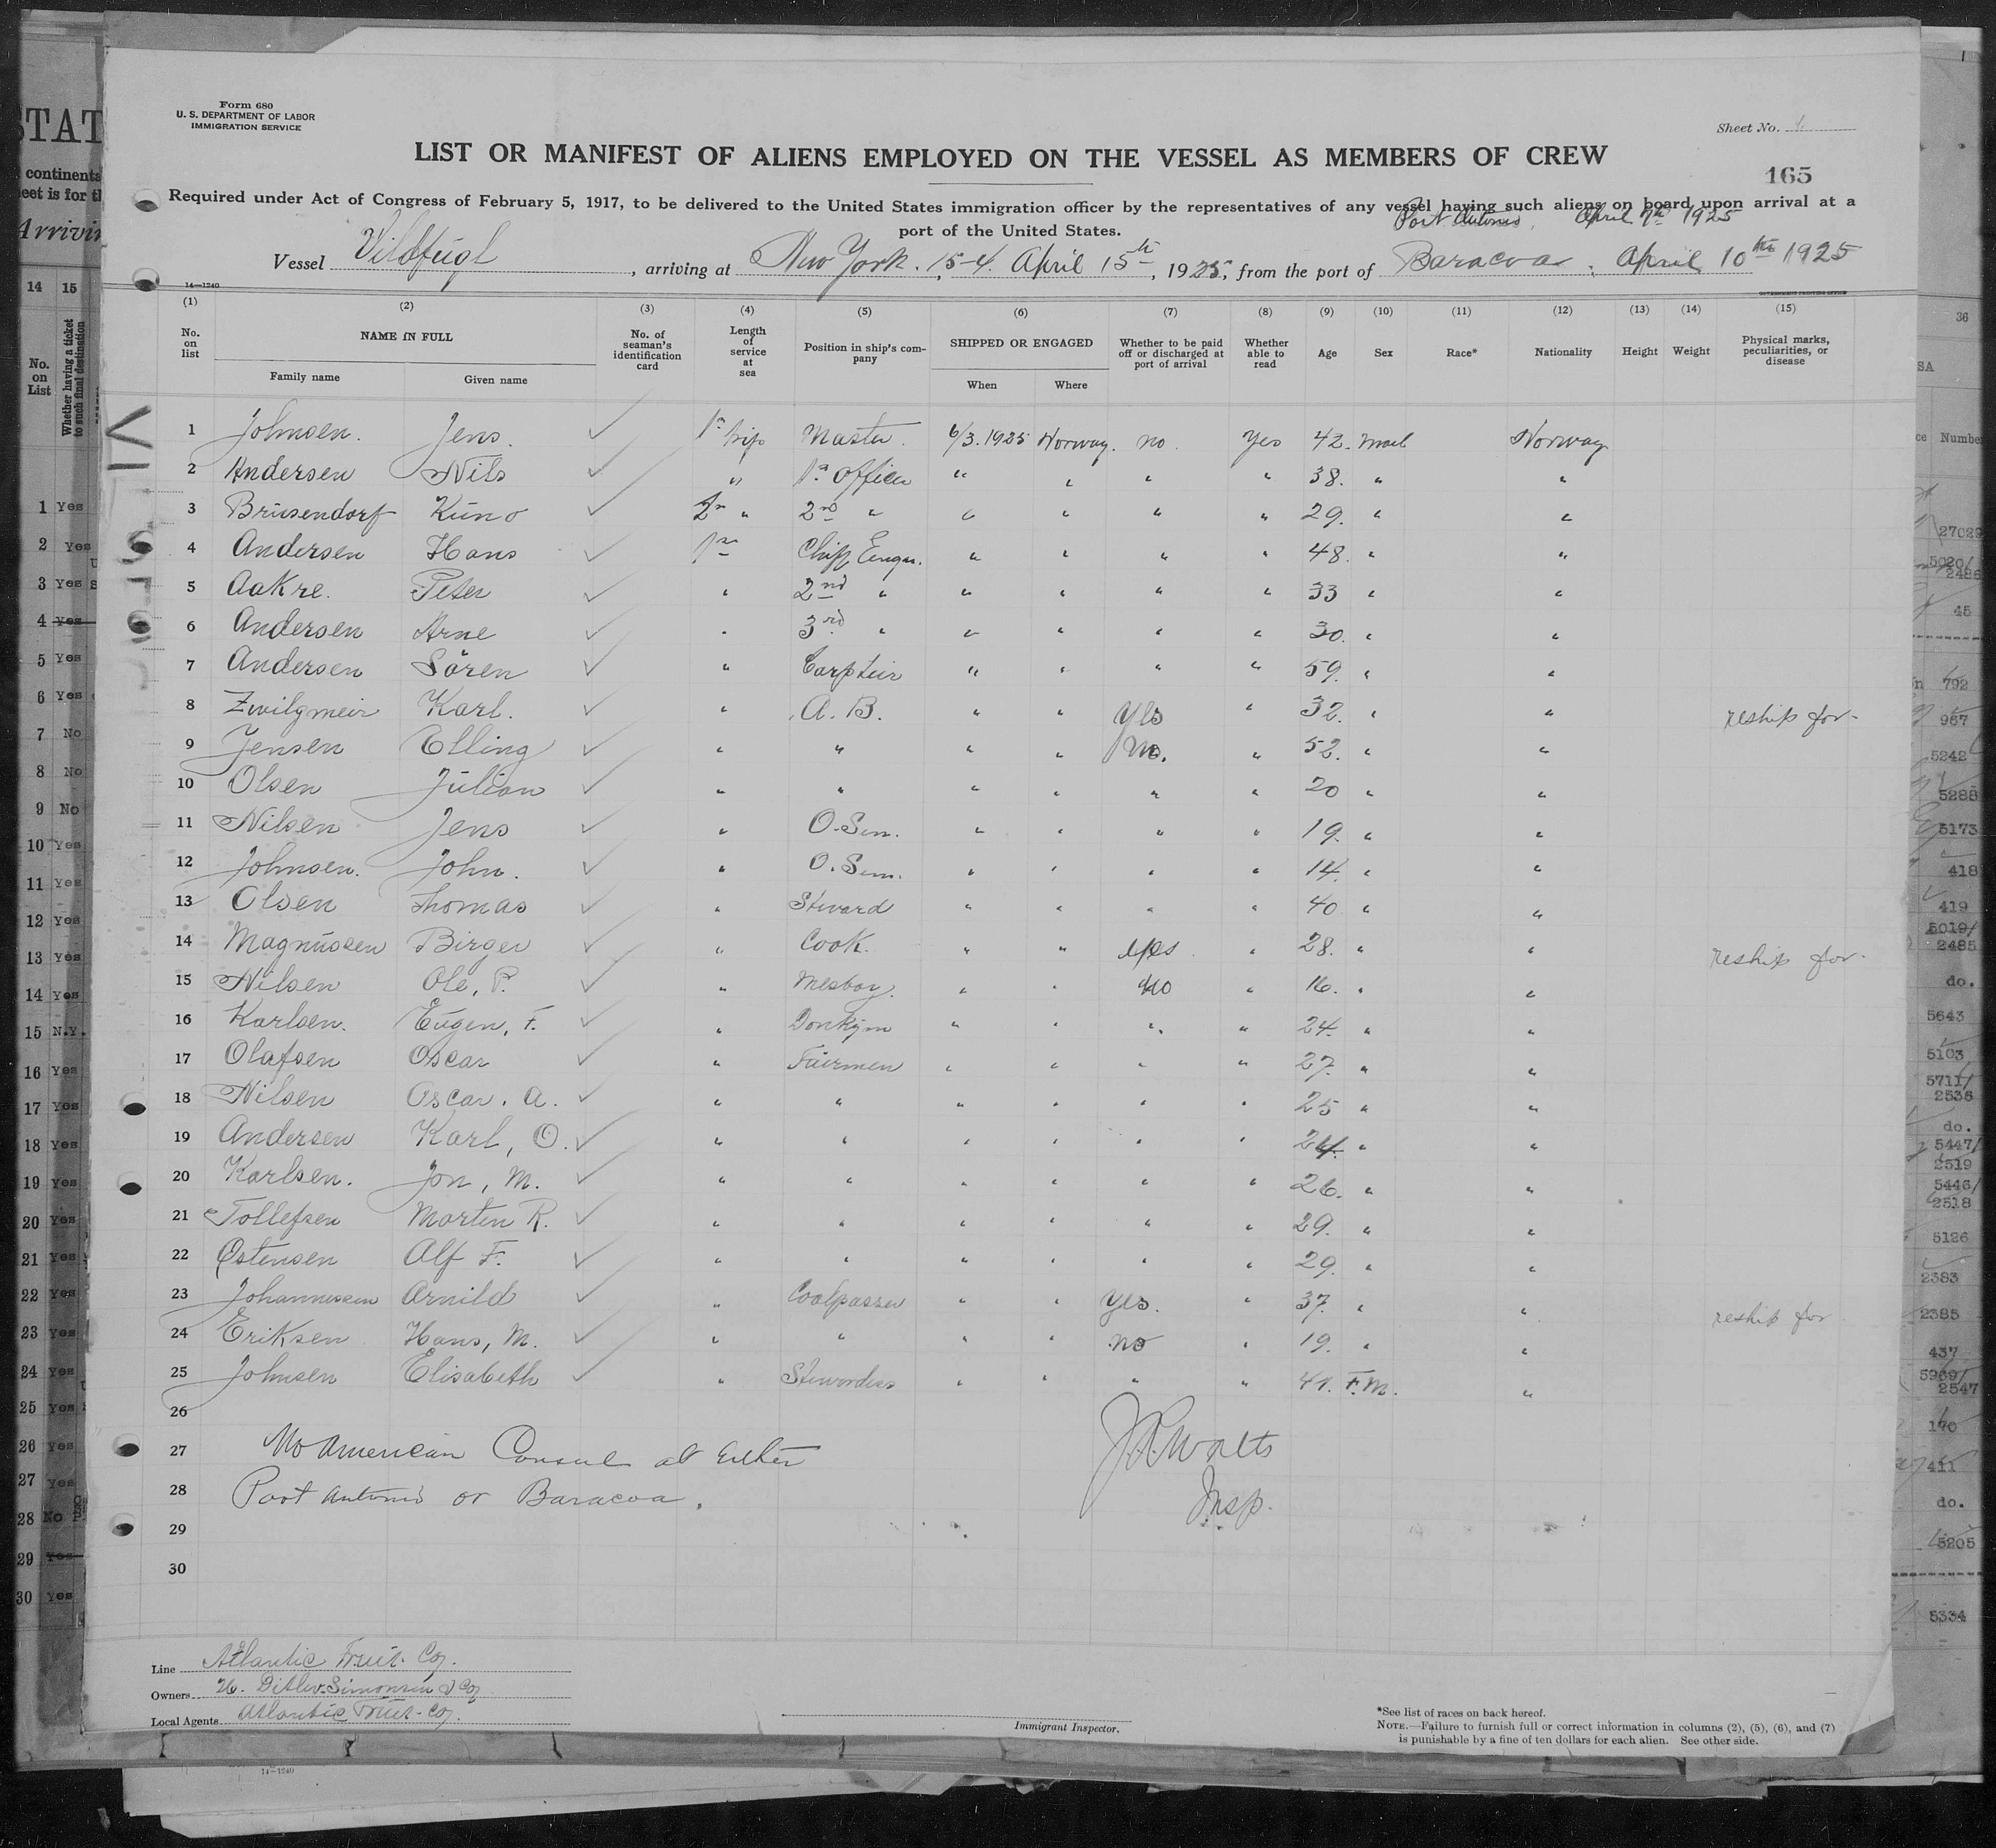 Form 680
U. S. DEPARTMENT OF LABOR
IMMIGRATION SERVICE
Sheet No. 1.
LIST OR MANIFEST OF ALIENS EMPLOYED ON THE VESSEL AS MEMBERS OF CREW
165
Required under Act of Congress of February 5, 1917, to be delivered to the United States immigration officer by the representatives of any vessel having such aliens on board upon arrival at a
port of the United States.
Port Antonio, April 7th 1925
Vessel Vildfugl, arriving at New York. 15-4. April 15th, 1925, from the port of Baracoa, April 10th 1925
14—1240
(1) (2) (3) (4) (5) (6) (7) (8) (9) (10) (11) (12) (13) (14) (15)
No. on list NAME IN FULL No. of seaman's identification card Length of service at sea Position in ship's company SHIPPED OR ENGAGED Whether to be paid off or discharged at port of arrival Whether able to read Age Sex Race* Nationality Height Weight Physical marks, peculiarities, or disease
Family name Given name When Where
1 Johnsen. Jens. 1st trip Master. 6/3.1925 Norway. no. Yes 42. Mael Norway
2 Andersen Nils " 1st officer " " " " 38. " "
3 Brüsendorf Küno 2nd " 2nd " " " " " 29. " "
4 Andersen Hans 1st Chiff Engn. " " " " 48. " "
5 Aakre. Peter " 2nd " " " " " 33 " "
6 Andersen Arne " 3rd " " " " " 30. " "
7 Andersen Sören " Carpteir " " " " 59. " "
8 Zwilgmeir Karl. " A. B. " " Yes " 32. " " reship for-
9 Jensen Elling " " " " No. " 52. " "
10 Olsen Júlian " " " " " " 20 " "
11 Nilsen Jens " O. Sem. " " " " 19. " "
12 Johnsen. John. " O. Sem. " " " " 14. " "
13 Olsen Thomas " Stevard " " " " 40 " "
14 Magnússen Birger " Cook. " " yes " 28. " " reship for-
15 Nilsen Ole, P. " Mesboy. " " no " 16. " "
16 Karlsen. Eúgen, F. " Donkym " " " " 24. " "
17 Olafsen Oscar " Fairmen " " " " 27. " "
18 Nilsen Oscar. A. " " " " " " 25 " "
19 Andersen Karl, O. " " " " " " 24. " "
20 Karlsen. Jon, M. " " " " " " 26. " "
21 Tollefsen Morten R. " " " " " " 29. " "
22 Østensen Alf F. " " " " " " 29. " "
23 Johannessen Arnild " Coalpasser " " Yes. " 37. " " reship for
24 Eriksen Hans, M. " " " " no " 19. " "
25 Johnsen Elisabeth " Stewordess " " " " 41. F.M. "
26
27 No American Consul at Either
28 Port Antonio or Baracoa.
29
30
Insp.
Line Atlantic Fruit. Coy.
Owners Ditlev-Simonsen & Coy
Local Agents Atlantic Fruit-Coy.
Immigrant Inspector.
*See list of races on back hereof.
NOTE.—Failure to furnish full or correct information in columns (2), (5), (6), and (7)
is punishable by a fine of ten dollars for each alien. See other side.